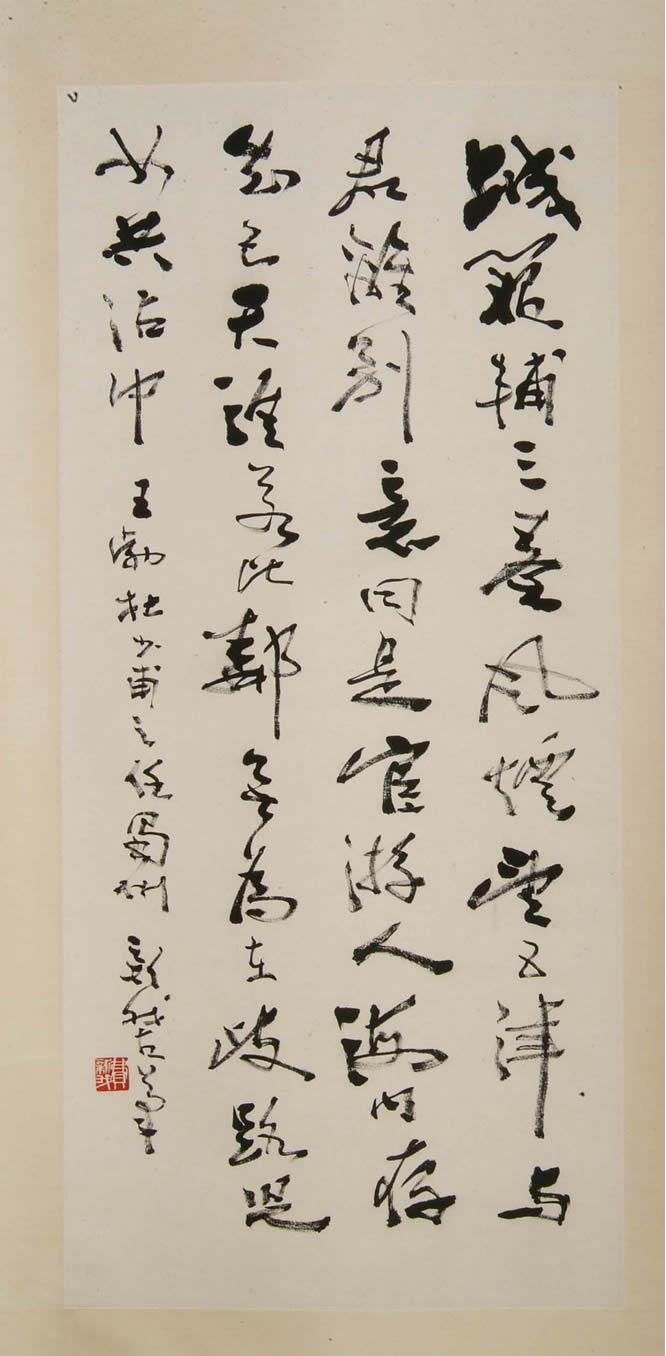 城闕輔三秦風煙望五津与
君離別意同是宦游人海内存
知己天涯若比鄰無為在歧路兒
女共沾巾 王勃杜少甫之任蜀州 新我左筆
費新我